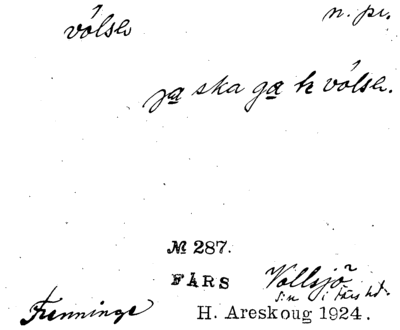 vólse n. pr.
ja ska ga k vólse.
№ 287.
FÄRS Vollsjö
s:n i Färs hd.
Frenninge H. Areskoug 1924.